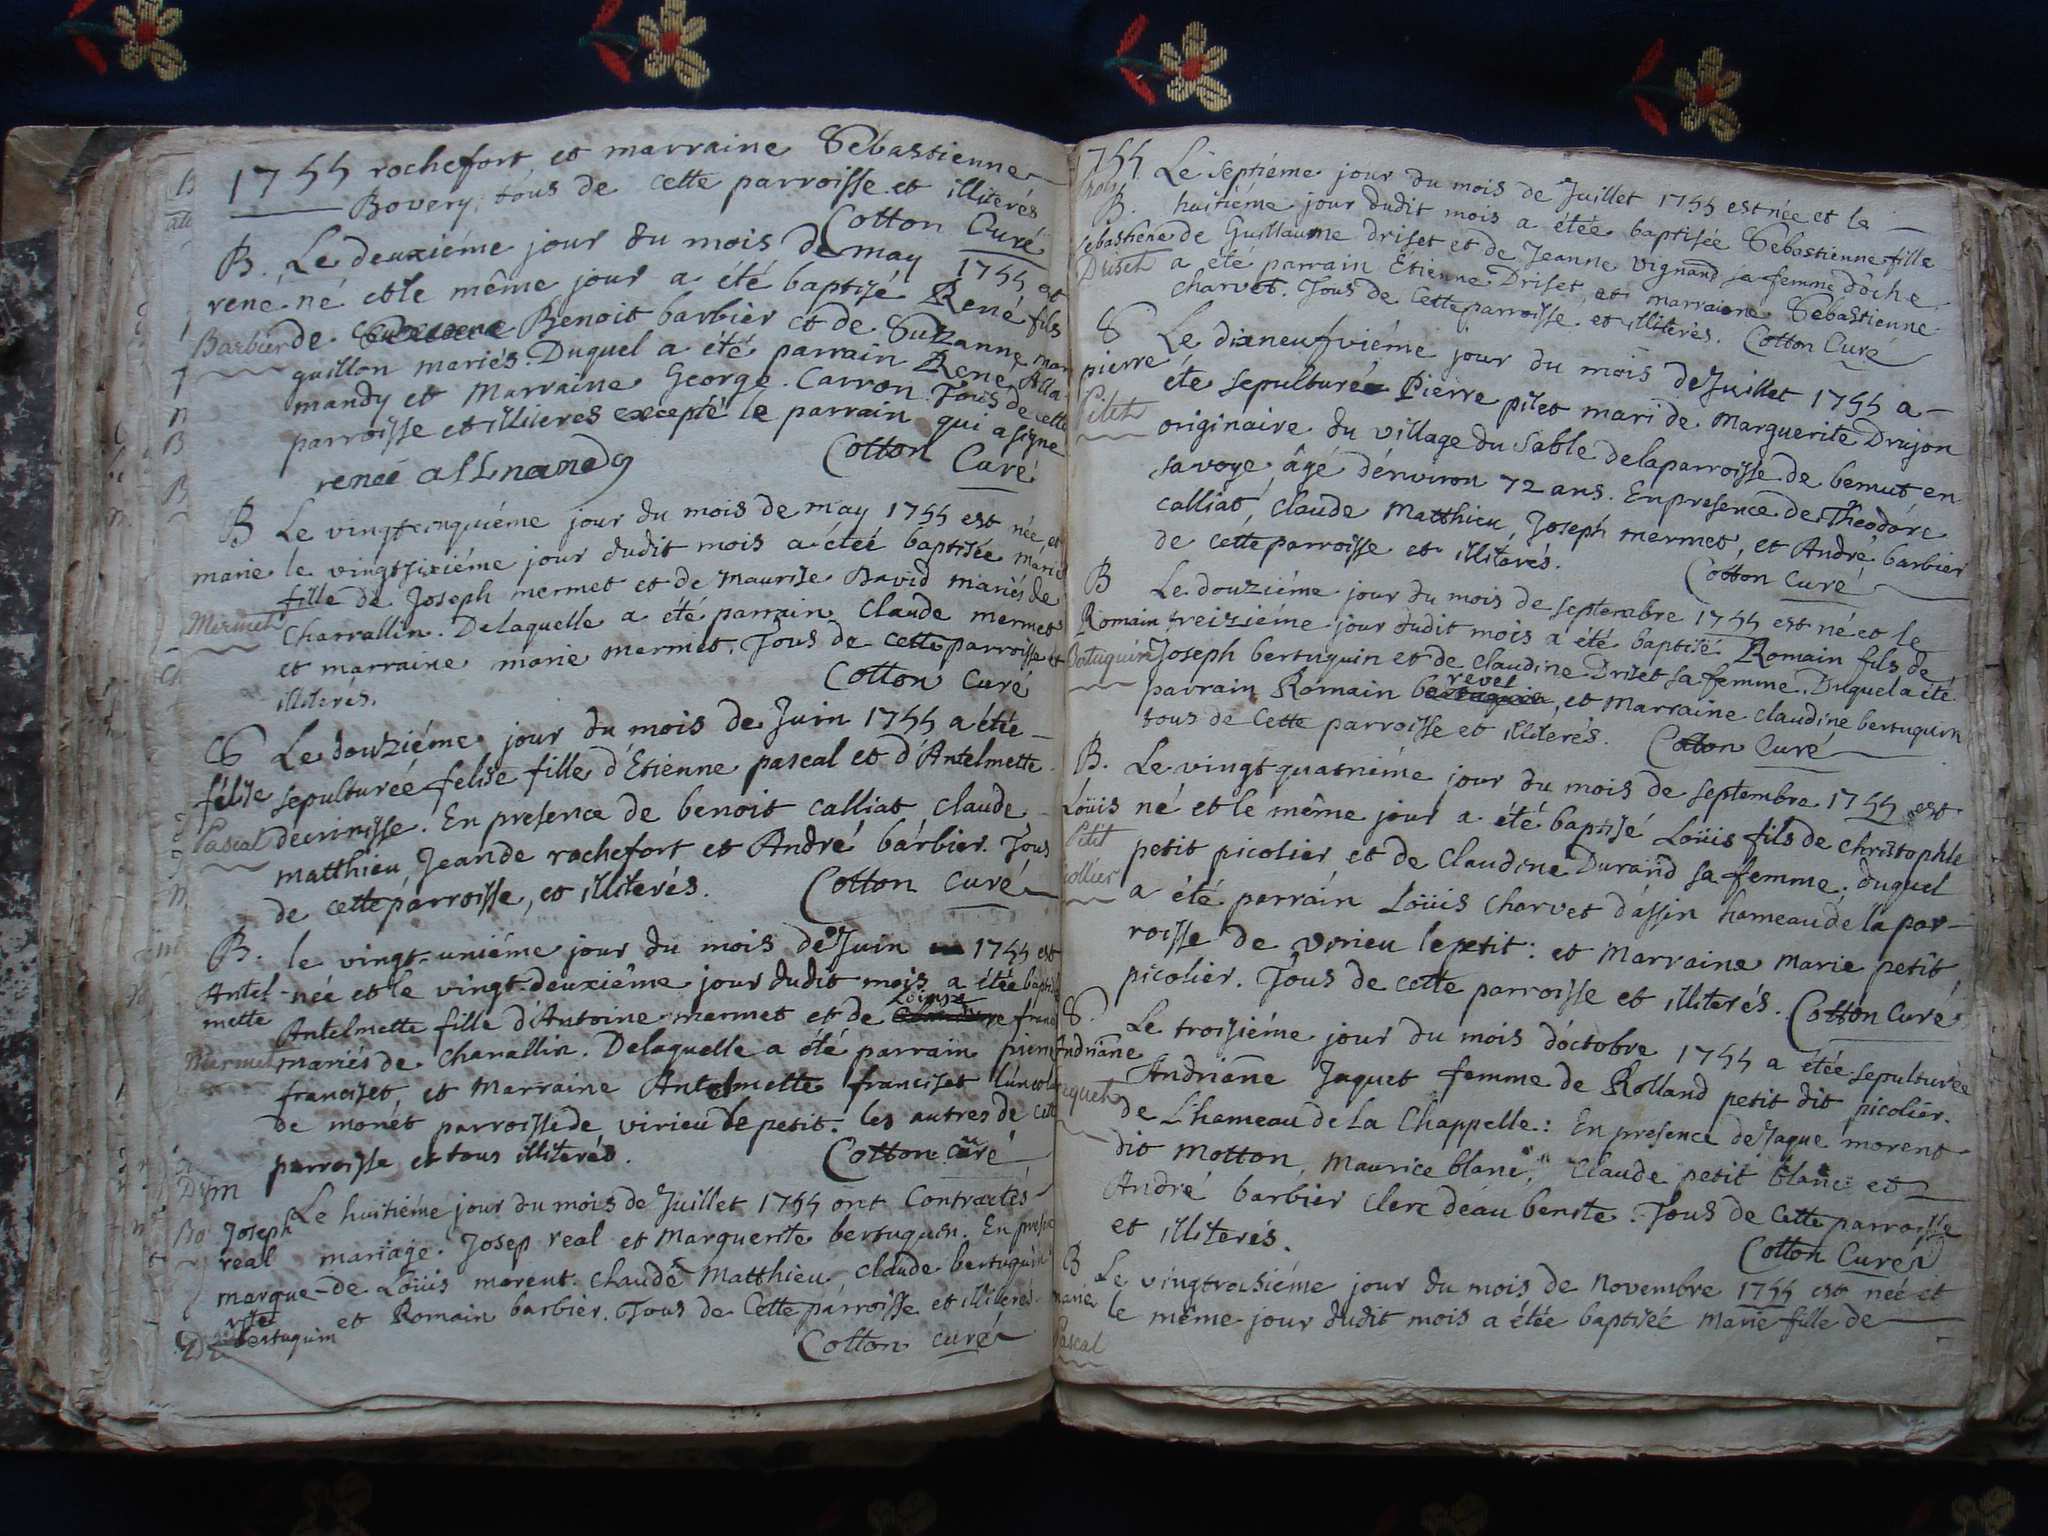 1755 rochefort et marraine Sebastienne
Bovery, tous de cette parroisse et illiterés
Cotton Curé
B. Le deuxiéme jour du mois de may 1755 est
rené né et le même jour a été baptisé René fils
Barbier de Benoit barbier et de Suzanne mar
guillon mariés. Duquel a été parrain René Alla
mandy et Marraine George Carron. Tous de cette
parroisse et illiterés excepté le parrain qui a signé
renée allmandy Cotton Curé
B Le vingtcinquiéme jour du mois de may 1755 est née et
marie le vingtsixiéme jour dudit mois a étéé baptisée marie
fille de Joseph mermet et de maurise David mariés de
Mermet Charrallin. Delaquelle a été parrain Claude mermet
et marraine marie mermet. Tous de cette parroisse et
illiterés. Cotton Curé
S Le douziéme jour du mois de Juin 1755 a étée
félise sepulturéé felise fille d'Etienne pascal et d'Antelmette
Pascal decrinisse. En presence de benoit calliat, claude
matthieu, Jean de rochefort et André barbier. Tous
de cette parroisse, et illiterés. Cotton Curé
B. le vingt-uniéme jour du mois de Juin 1755 est
Antel- née et le vingt-deuxiéme jour dudit mois a étée baptisée
mette Antelmette fille d'Antoine mermet et de Loüise franci
Mermet mariés de charrallin. Delaquelle a été parrain pierre
franciset, et Marraine Antelmette franciset
de monét parroisse de virieu le petit. les autres de cette
parroisse et tous illiterés. Cotton curé
m Le huitiéme jour du mois de Juillet 1755 ont Contractés
Joseph real mariage. Josep real et Marguerite bertuguin. En presence
marque- de Loüis morent. chaude Matthieu, claude bertuguin
rite et Romain barbier. Tous de Cette parroisse et illiterés.
bertuguin Cotton curé
1755 Le septiéme jour du mois de Juillet 1755 est née et le
B. huitiéme jour dudit mois a étée baptisée Sebastienne fille
Sebastiene de Guillaume driset et de Jeanne vignand sa femme d'oche
Driset a été parrain Etienne Driset, et marraine Sebastienne
charvet. Tous de Cette parroisse et illiterés. Cotton Curé
S Le dixneufviéme jour du mois de Juillet 1755 a
pierre été sepulturé Pierre pilet mari de marguerite Drujon
Pilet originaire du village du Sable de la parroisse de bemut en
savoye, âgé d'environ 72 ans. En presence de Théodore
calliat, claude Matthieu, Joseph mermet, et André barbier
de cette parroisse et illiterés. Cotton Curé
B Le douziéme jour du mois de septembre 1755 est né et le
Romain treiziéme jour dudit mois a été baptisé Romain fils de
Bertuguin Joseph bertuguin et de claudine Driset sa femme. Duquel a été
parrain Romain revel, et Marraine claudine bertuguin
tous de Cette parroisse et illiterés. Cotton Curé
B. Le vingt-quatriéme jour du mois de septembre 1755 est
Loüis né et le même jour a été baptisé Loüis fils de christophle
Petit petit picolier et de Claudine Durand sa femme. duquel
a été parrain Loüis charvet d'assin hameau de la par-
roisse de virieu le petit: et Marraine Marie petit
picolier. Tous de cette parroisse et illiterés. Cotton Curé
S. Le troisiéme jour du mois d'octobre 1755 a étée sepulturée
Andriane Andriane Jaquet femme de Rolland petit dit picolier.
de L'hameau de La Chappelle: En presence de Jaque morent
dit Motton, Maurice blanc, Claude petit blanc et
André barbier Clerc d'eau benite. Tous de Cette parroisse
et illiterés. Cotton Curé
B Le vingtroisiéme jour du mois de Novembre 1755 est née et
marie le même jour dudit mois a étée baptisée Marie fille de
Pascal